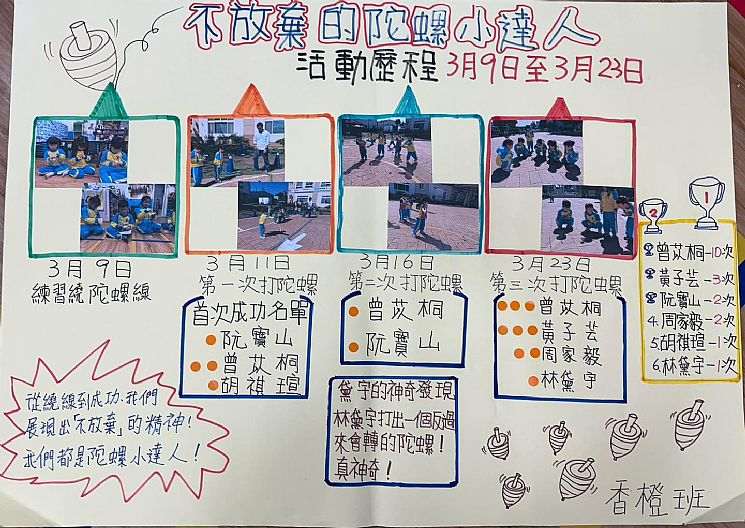 不放棄的陀螺小達人
活動歷程 3月9日至3月23日
3月9日
練習繞陀螺線
3月11日
第一次打陀螺
首次成功名單
阮寶山
曾苡桐
胡祺瑄
3月16日
第二次打陀螺
曾苡桐
阮寶山
3月23日
第三次打陀螺
曾苡桐
黃子芸
周家毅
林黛宇
2
1
曾苡桐-10次
黃子芸-3次
阮寶山-2次
4.周家毅-2次
5.胡祺瑄-1次
6.林黛宇-1次
從繞線到成功、我們
展現出「不放棄」的精神!
我們都是陀螺小達人!
黛宇的神奇發現
林黛宇打出一個反過
來會轉的陀螺!
真神奇!
香橙班